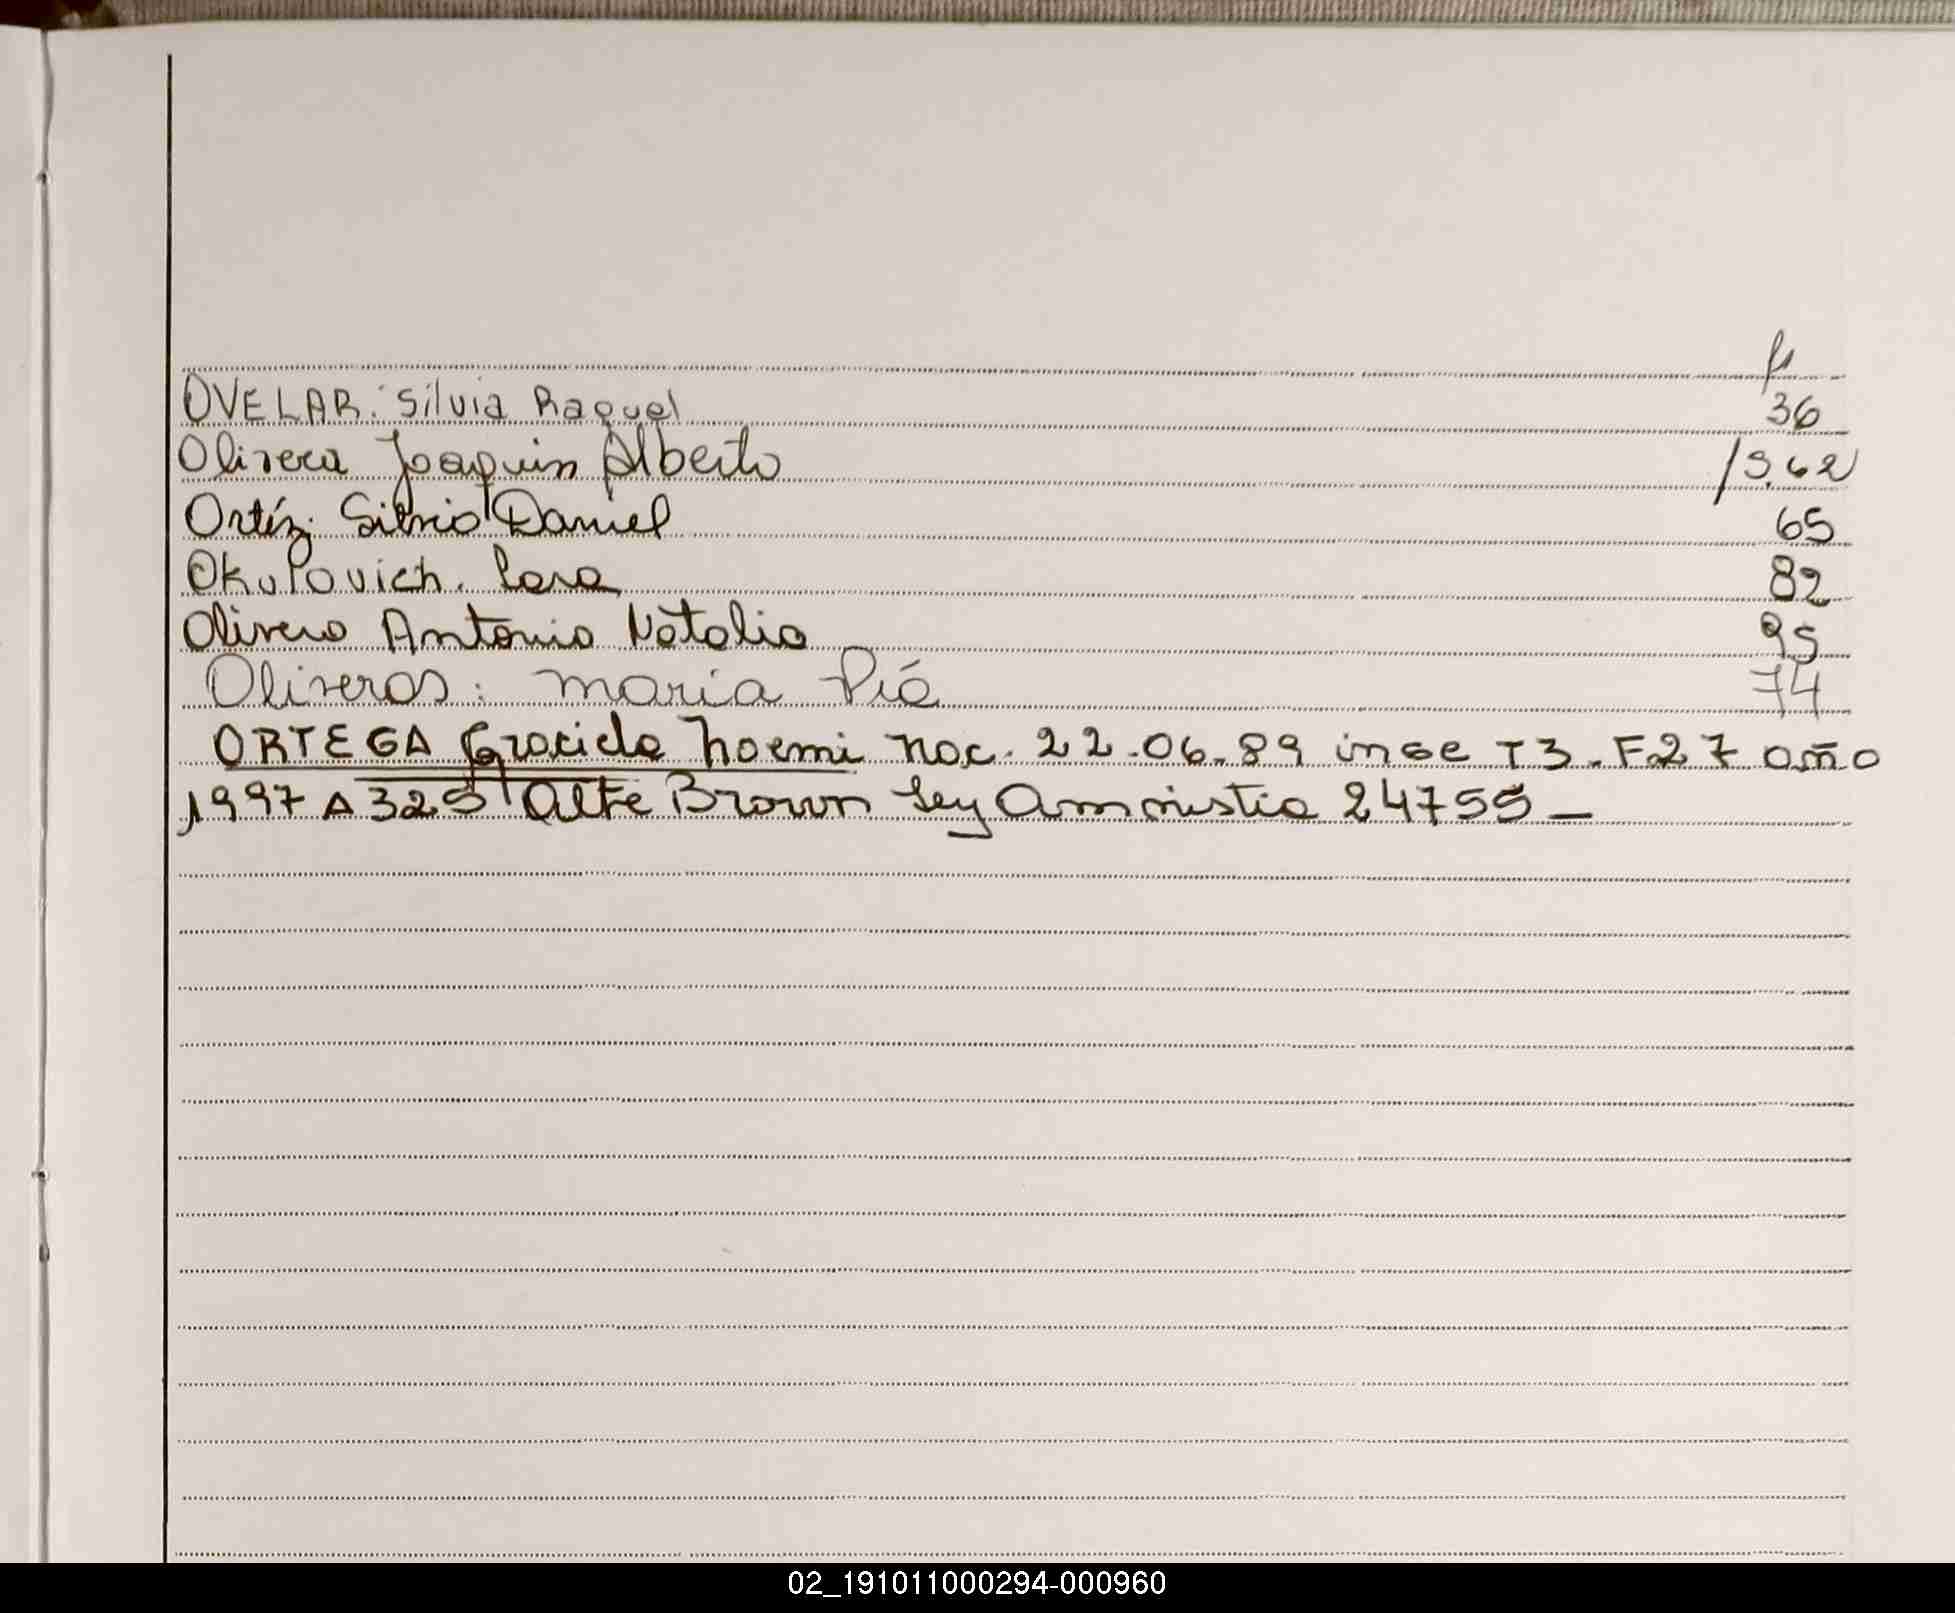 OVELAR. Silvia Raquel 36
Olivera Joaquin Alberto 62
Ortíz. Silvio Daniel 65
Okulovich. Lara 82
Olivero Antonio Natalio 95
Oliveros: maria Pía 74
ORTEGA Graciela Noemi Nac. 22-06-89 insc T3. F27 año
1997 A 325 Alte Brown Ley Amnistia 24755 —
02_191011000294-000960